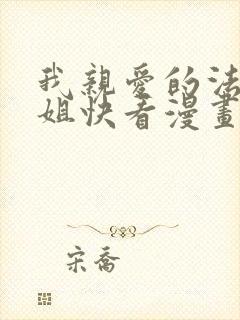 我親愛的法
姐快看漫畫
宋喬